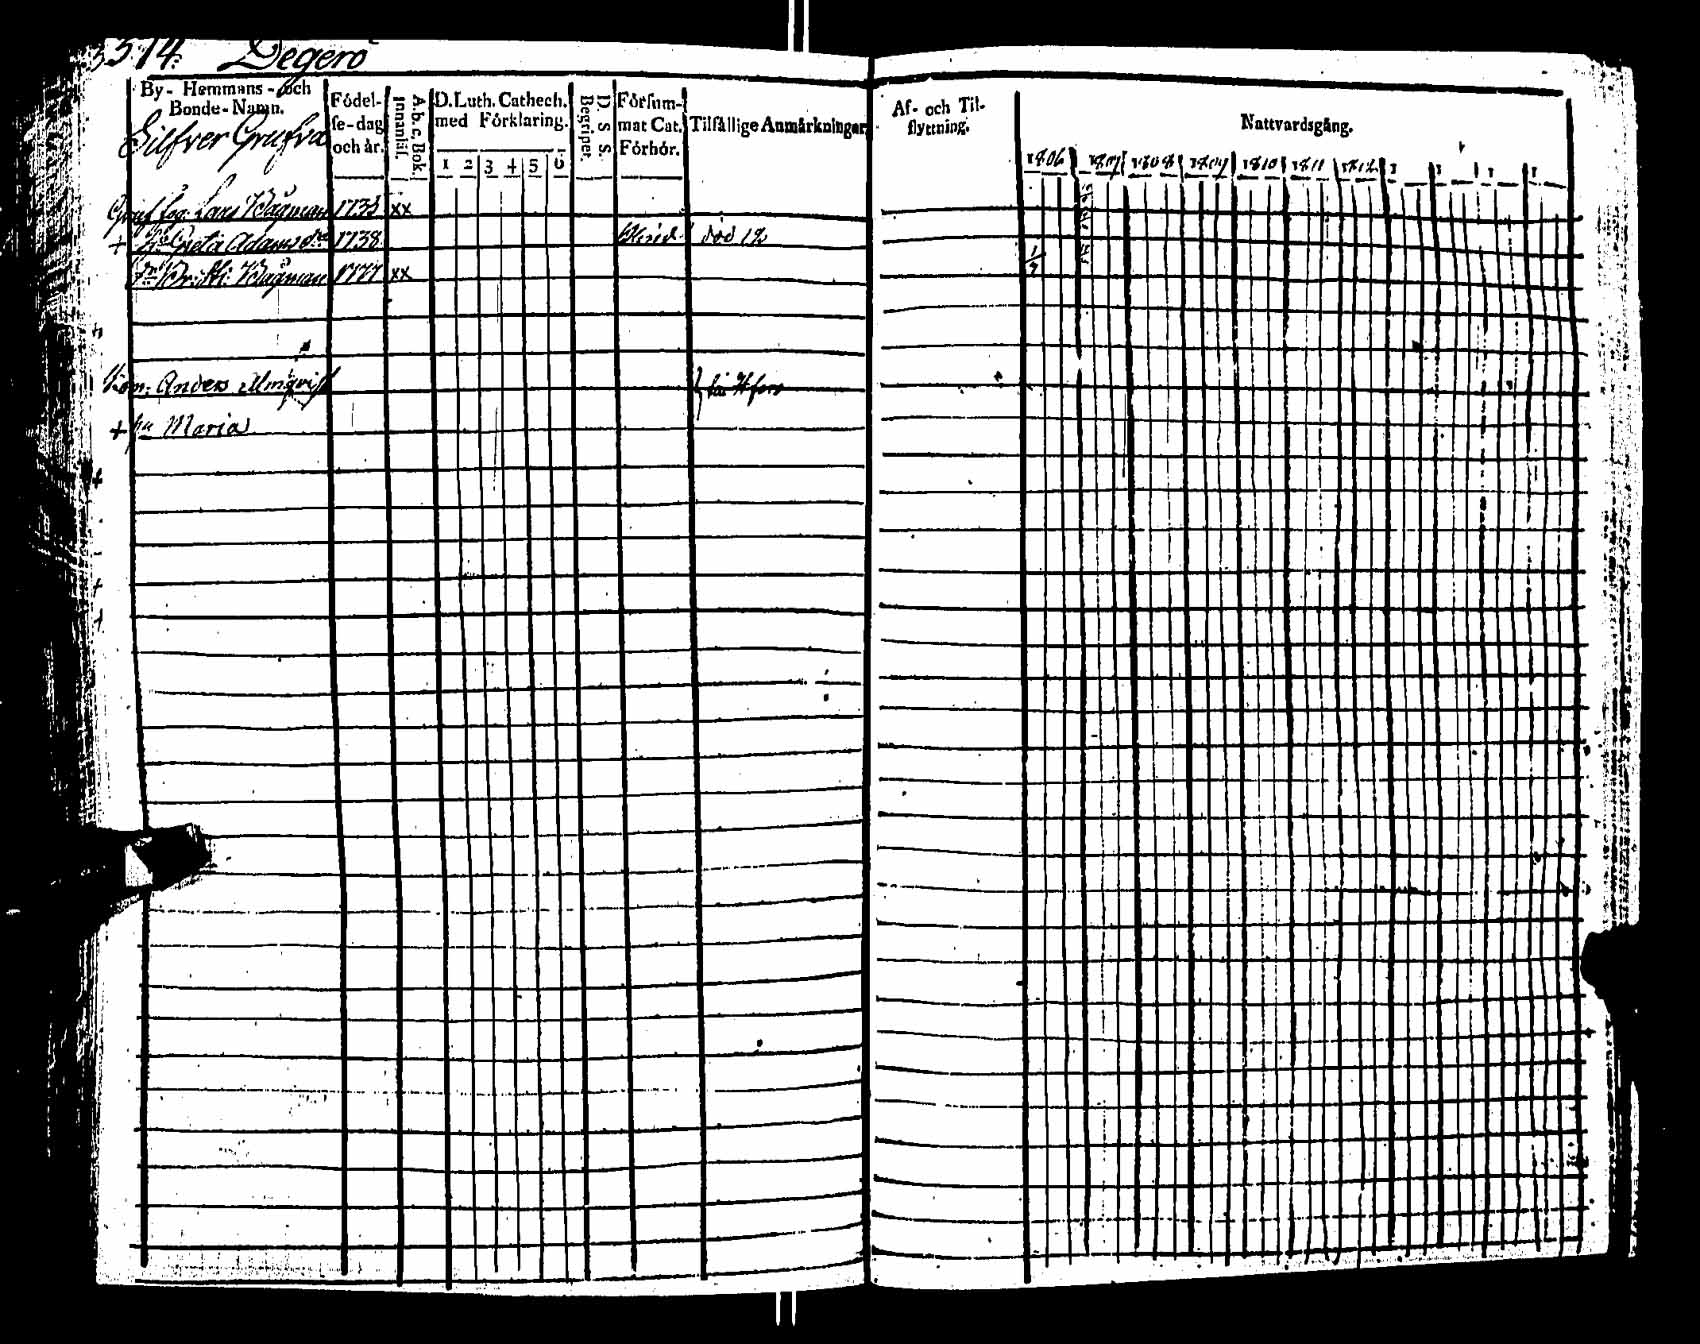 514. Degerö
By- Hemmans- och Bonde-Namn.
Silfver Grufva
Födelse-dag och år.
A, b, c, Bok. Innanläs.
D. Luth. Cathech. med Förklaring.
1 2 3 4 5 6
D. S. S. Begriper.
Försummat Cat. Förhör.
Tilfällige Anmärkningar
Af- och Tilflyttning.
Nattvardsgång.
1806 1807 1808 1809 1810 1811 1812 1 1 1 1
Gruf fog: Lars Wagman 1738 xx
+ Greta Adamsdr 1738 död
Wagman 1777 xx
1/7
Anders Almqvist
+ hu Maria